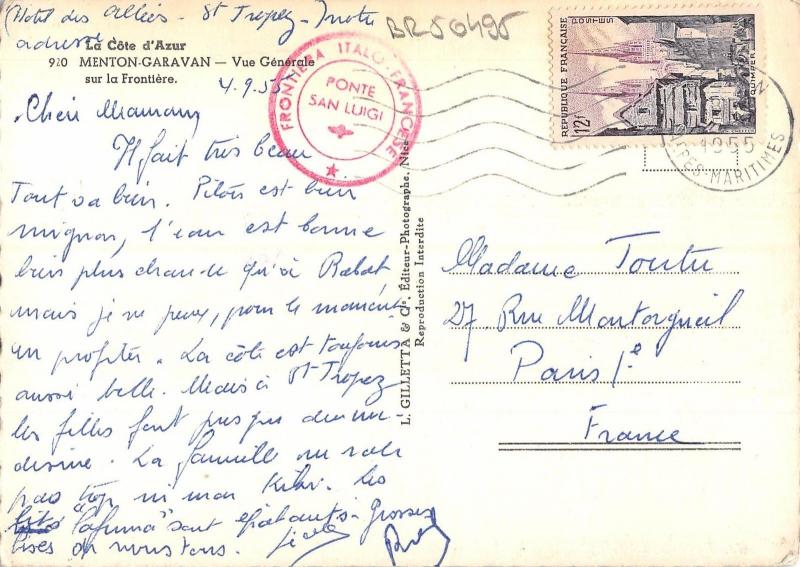 (Hotel des Alliés - St Tropez - Notre
adresse
La Côte d'Azur
920 MENTON-GARAVAN — Vue Générale
sur la Frontière.
4.9.55
Chère Maman,
Il fait très beau
Tout va bien. Pilou est bien
mignon, l'eau est bonne
bien plus chaude qu'à Rabat
mais je ne peux, pour le moment
en profiter. La côte est toujours
aussi belle. Mais à St Tropez
les filles font presque
La famille
pas trop ni mon Les
"Lafuma" sont épatants. Grosses
bises de nous tous.
FRONTIERA ITALO-FRANCESE
PONTE
SAN LUIGI
BR56495
L. GILLETTA & Cie, Éditeur-Photographe, Nice
Reproduction Interdite
REPUBLIQUE FRANÇAISE
POSTES
12F
QUIMPER
1955
ALPES-MARITIMES
Madame Toutu
27, Rue Montorgueil
Paris 1e
France